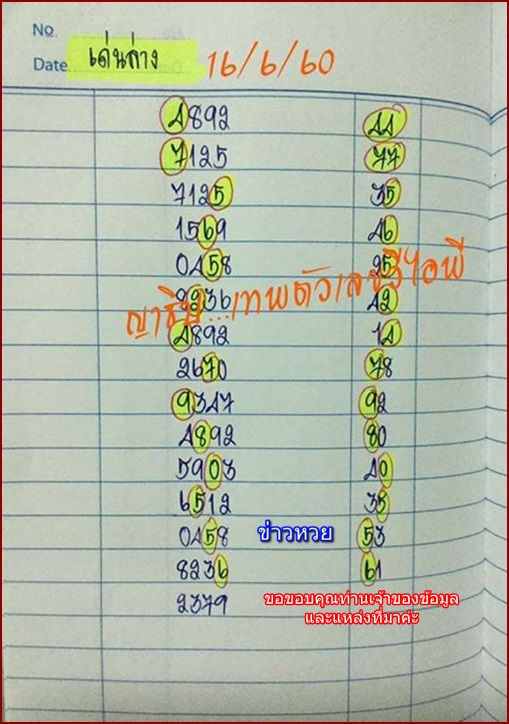 No.
Date เด่นล่าง 16/6/60
4892 44
7125 77
7125 35
1569 46
0458 25
8236 42
ญาธิษฐ์...เทพตัวเลขวีไอพี
4892 14
2670 78
9347 92
4892 80
5903 40
6512 35
0458 ข่าวหวย 53
8236 61
2379
ขอขอบคุณท่านเจ้าของข้อมูล
และแหล่งที่มาค่ะ